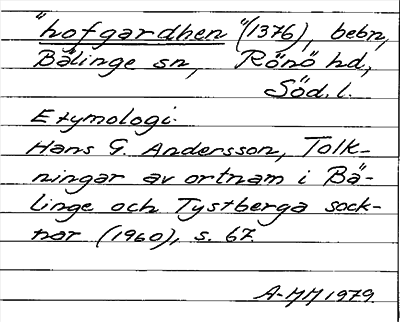 "hofgardhen" (1376), bebn,
Bälinge sn, Rönö hd,
Söd. l.
Etymologi:
Hans G. Andersson, Tolk-
ningar av ortnam i Bä-
linge och Tystberga sock-
nar (1960), s. 67.
A-MM 1979.